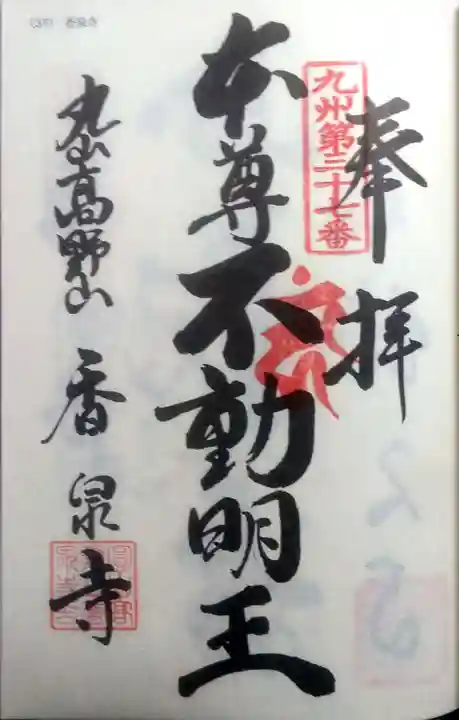 (37) 香泉寺
奉拝
九州第三十七番
本尊不動明王
丸山高野山 香泉寺